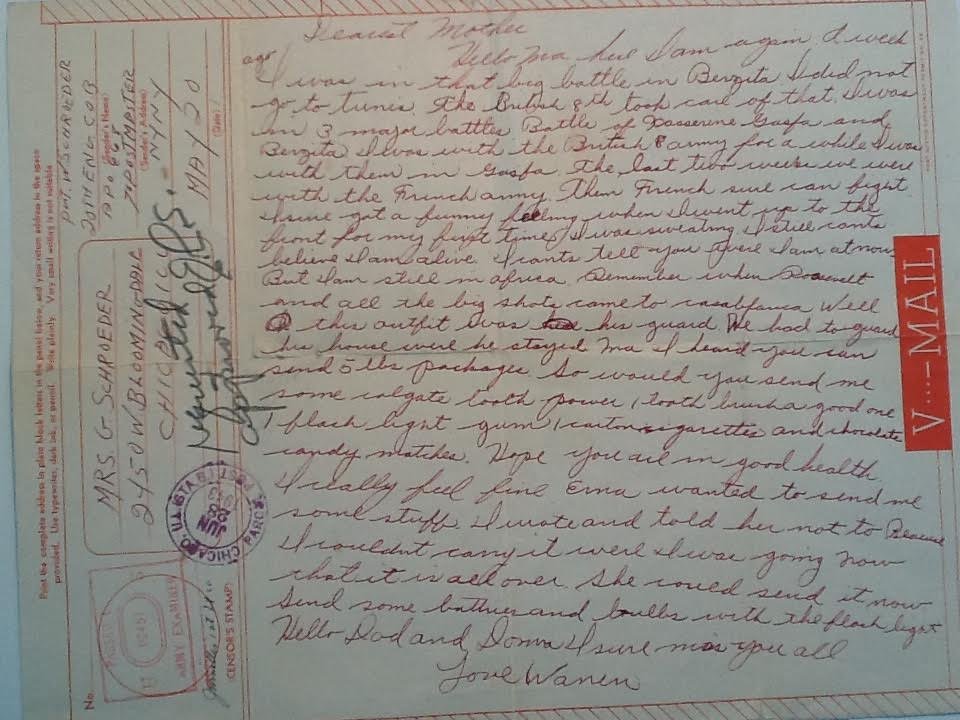 Print the complete address in plain block letters in the panel below, and your return address in the space
provided. Use typewriter, dark ink, or pencil. Write plainly. Very small writing is not suitable
No.
MRS. G SCHROEDER
2450 W BLOOMINGDALE
CHICAGO ILL
PVT. W SCHROEDER
20TH ENG. CO B
(Sender's Name)
APO 668
℅ POSTMASTER
(Sender's Address)
N.Y. N.Y
MAY 20
(Date)
PASSED
BY
ARMY EXAMINER
CENSOR'S STAMP
CHICAGO, ILL.
JUN
Requested
Approved
Dearest Mother
Hello Ma here I am again A week
ago
I was in that big battle in Berzita I did not
go to tunis. The British 8th took care of that. I was
in 3 major battles Battle of Kasserine Gasfa and
Berzita I was with the British 8 army for a while I was
with them in Gasfa. The last two weeks we were
with the French army. Them French sure can fight
I sure got a funny feeling when I went up to the
front for my first time, I was sweating I still cants
believe I am alive. I cants tell you were I am at now
But I am still in africa. Remember when Roosevelt
and all the big shots came to casablanca Well
this outfit I was his guard. We had to guard
his house were he stayed Ma I heard you can
send 5 lbs packages. So would you send me
some colgate tooth power, 1 tooth brush a good one
1 flash light gum 1 carton sigarettes and chocolate
candy matches. Hope you are in good health.
I really feel fine Erna wanted to send me
some stuff. I wrote and told her not to Because
I couldnt carry it were I was going now
that it is all over. She could send it now
Send some batteries and bulbs with the flash light
Hello Dad and Donna I sure miss you all
Love Warren
V···—MAIL